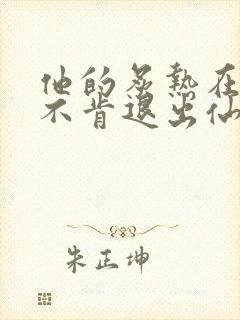 他的炙热在
不肯退出仙
朱正坤